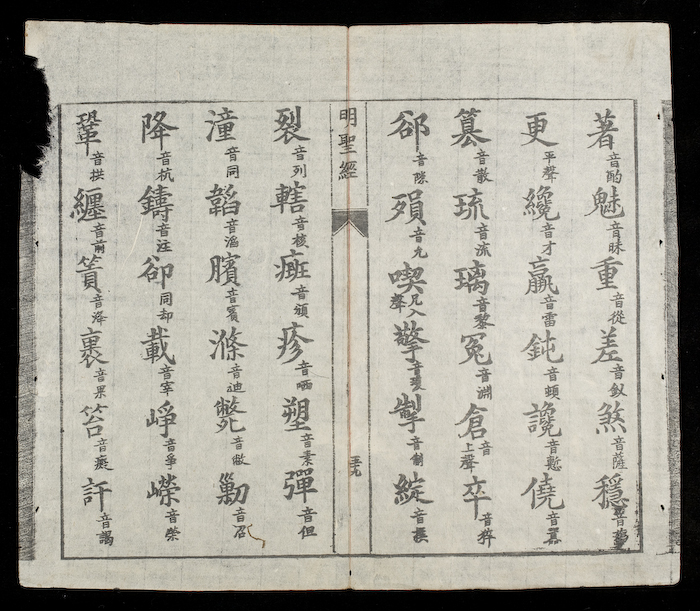 著音酌魅音昧重音從差音釵煞音薩穩
更平聲纔音才羸音雷鈍音頓讒音慙僥音
篡音散琉音流璃音黎冤音淵倉音上聲卒音猝
郤音隙殞音允喫凡入聲擎音製音制綻音
明聖經
五九
裂音列轄音核癍音頒疹音哂塑音素彈音但
潼音同韜音滔臏音賓滌音迪斃音敝劅音召
降音杭鑄音注卻同却載音宰崢音爭嶸音榮
鞏音拱纏音前簣音裹音果笞音癡訐音謁